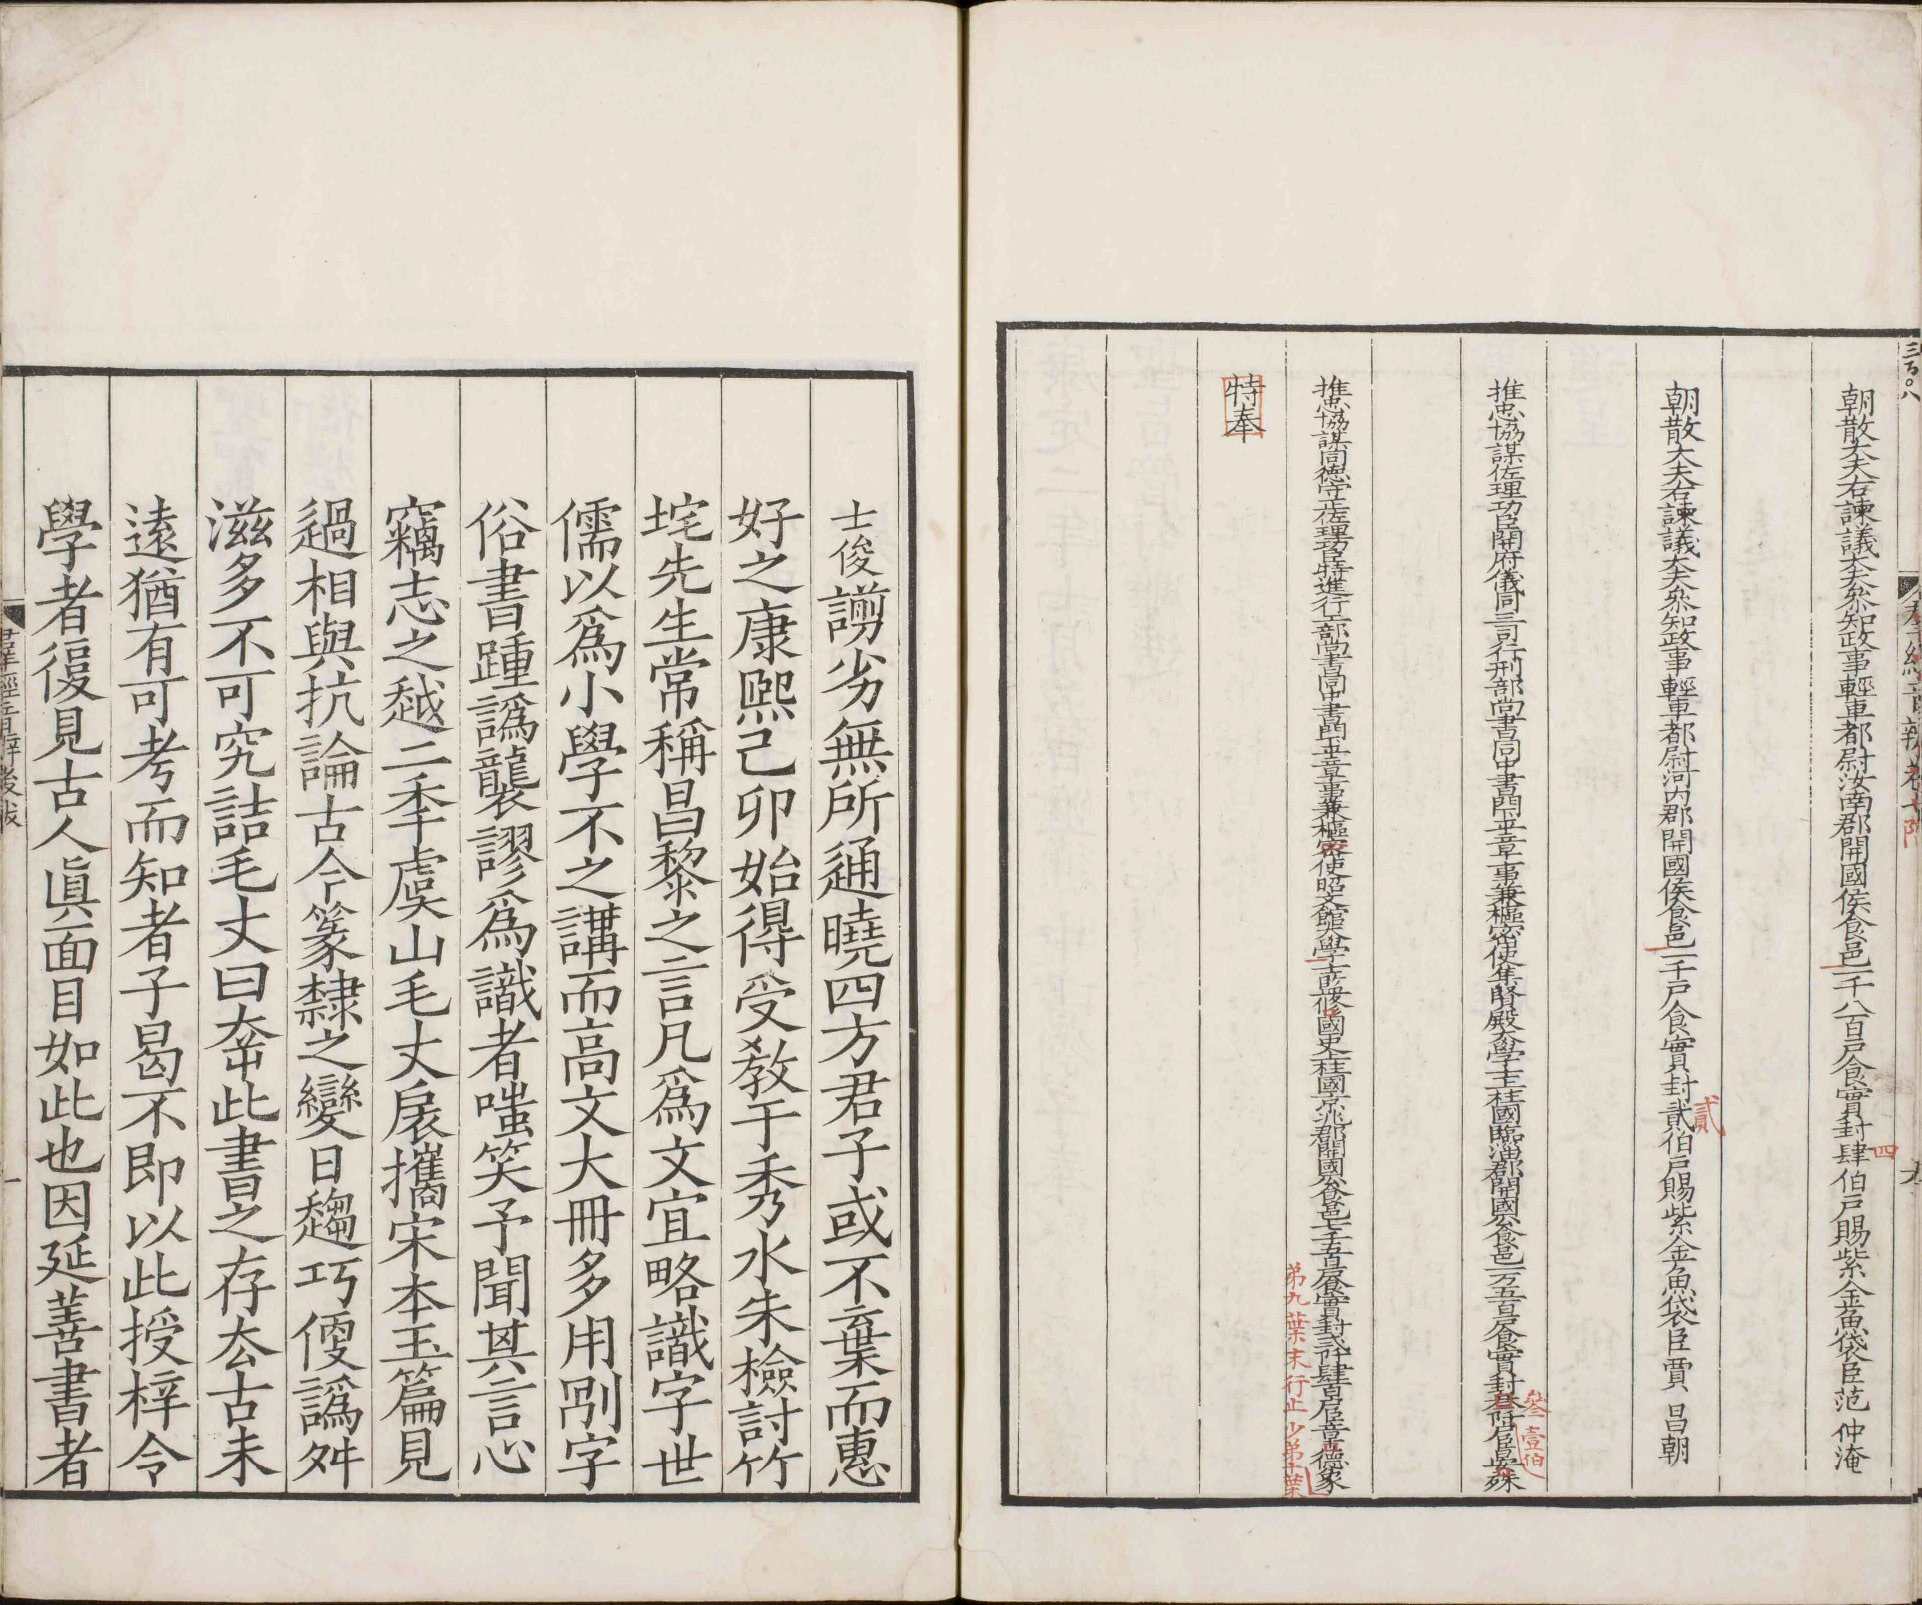 三百〇八
朝散大夫右諫議大夫叅知政事輕車都尉汝南郡開國侯食邑一千八百戸食實封肆伯戸賜紫金魚袋臣范仲淹
四
朝散大夫右諫議大夫叅知政事輕車都尉河内郡開國侯食邑一千戸食實封貳伯戸賜紫金魚袋臣賈昌朝
貳
推忠協謀佐理功臣開府儀同三司行刑部尚書同中書門下平章事兼樞密使集賢殿大學士上柱國臨淄郡開國公食邑一万五百戸食實封叅阡戸臣晏殊
叅壹伯
推忠協謀同德守正佐理功臣特進行工部尚書同中書門下平章事兼樞密使昭文館大學士監修國史上柱國京兆郡開國公食邑七千五百戸食實封貳阡肆百戸臣章德象
第九葉末行止少第十葉
特奉
士俊譾劣無所通曉四方君子或不棄而惠
好之康熙己卯始得受敎于秀水朱檢討竹
垞先生常稱昌黎之言凡爲文宜略識字世
儒以爲小學不之講而高文大冊多用刚字
俗書踵譌襲謬爲識者嗤笑予聞其言心
竊志之越二季虞山毛丈扆攜宋本玉篇見
過相與抗論古今篆隸之變日趨巧㑄譌舛
滋多不可究詰毛丈曰夲此書之存厺古未
遠猶有可考而知者子曷不即以此授梓令
學者復見古人眞面目如此也因延善書者
羣經音辨後跋
一